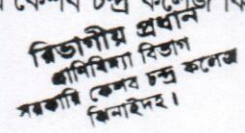 বিভাগীয় প্রধান
প্রাণিবিদ্যা বিভাগ
সরকারি কেশব চন্দ্র কলেজ
ঝিনাইদহ।